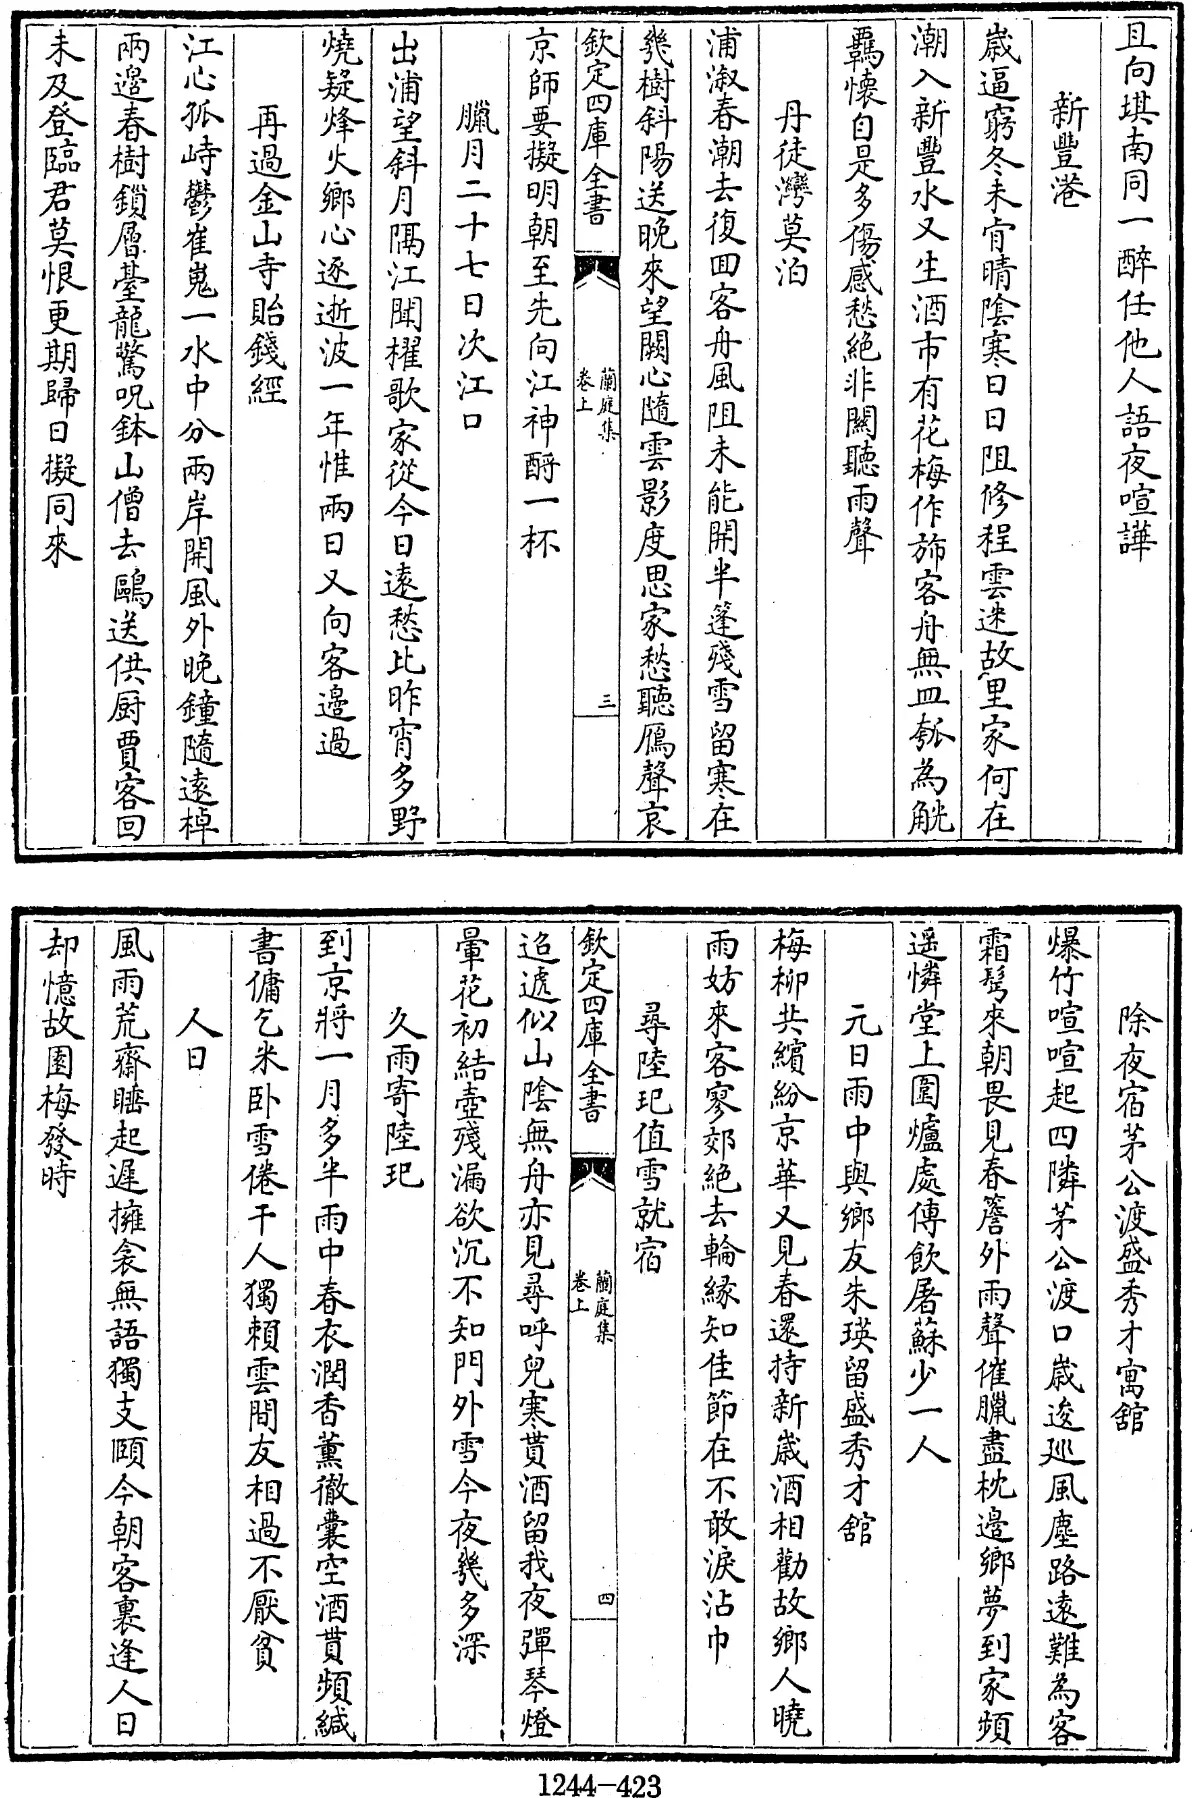 且向堪南同一醉任他人語夜喧譁
新豐港
歲逼窮冬未肯晴陰寒日日阻修程雲迷故里家何在
潮入新豐水又生酒市有花梅作斾客舟無皿瓠為觥
羈懷自是多傷感愁絶非闗聽雨聲
丹徒灣莫泊
浦溆春潮去復回客舟風阻未能開半篷殘雪留寒在
幾樹斜陽送晩來望闕心隨雲影度思家愁聽鴈聲哀
欽定四庫全書
蘭庭集
卷上
三
京師要擬明朝至先向江神酹一杯
臘月二十七日次江口
出浦望斜月隔江聞櫂歌家從今日遠愁比昨宵多野
燒疑烽火鄉心逐逝波一年惟兩日又向客邊過
再過金山寺貽錢經
江心孤峙鬱崔嵬一水中分兩岸開風外晩鐘隨遠棹
兩邊春樹鎖層臺龍驚呪鉢山僧去鷗送供厨賈客回
未及登臨君莫恨更期歸日擬同來
除夜宿茅公渡盛秀才寓舘
爆竹喧喧起四隣茅公渡口歲逡廵風塵路遠難為客
霜髩來朝畏見春簷外雨聲催臘盡枕邊鄉夢到家頻
遥憐堂上圍爐處傳飲屠蘇少一人
元日雨中與鄉友朱瑛留盛秀才舘
梅柳共繽紛京華又見春還持新歲酒相勸故鄉人曉
雨妨來客寥郊絶去輪緣知佳節在不敢淚沾巾
尋陸玘值雪就宿
欽定四庫全書
蘭庭集
卷上
四
迢遞似山陰無舟亦見尋呼兒寒貰酒留我夜彈琴燈
暈花初結壺殘漏欲沉不知門外雪今夜幾多深
久雨寄陸玘
到京將一月多半雨中春衣潤香薰徹囊空酒貰頻緘
書傭乞米卧雪倦干人獨賴雲間友相過不厭貧
人日
風雨荒齋睡起遲擁衾無語獨支頤今朝客裏逢人日
却憶故園梅發時
1244-423